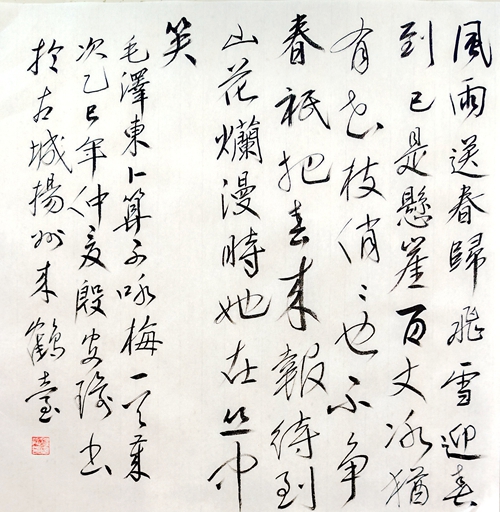 風雨送春歸飛雪迎春
到已是懸崖百丈冰猶
有花枝俏〻也不争
春祇把春来報待到
山花爛漫時她在丛中
笑
毛澤東卜算子咏梅一首歲
次乙巳年仲夏殷書
於古城揚州来鶴臺